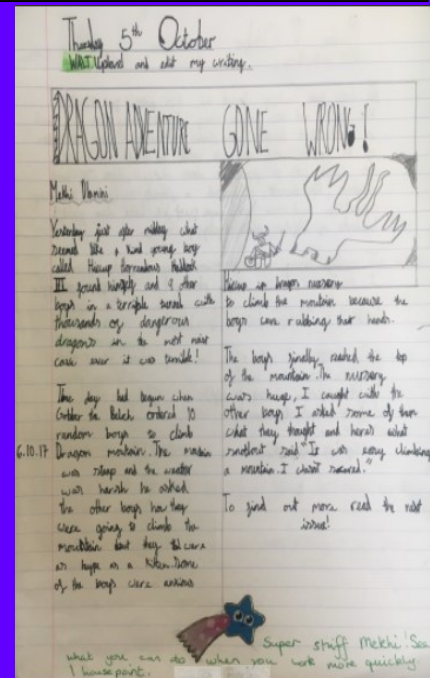 Thursday 5th October
WALT: upland and edit my writing.
DRAGON ADVENTURE GONE WRONG!
Mekhi
Yesterday just after midday what
seemed like a kind young boy
called Hiccup Horrendous Haddock
III found himself and 9 other
boys in a terrible tunnel with
thousands of dangerous
dragons in the most
case ever it was terrible!
The day had begun when
Gobber the Belch ordered 10
random boys to climb
6.10.17 Dragon mountain. The
was steep and the
was harsh he asked
the other boys how they
were going to climb the
mountain but they were
as hype as a kitten. Some
of the boys were anxious
Hiccup in dragon nursery
to climb the mountain because the
boys were rubbing their hands.
The boys finally reached the top
of the mountain. The nursery
was huge, I caught with the
other boys I asked some of them
what they thought and heres what
said "It was easy climbing
a mountain. I
To find out more read the next
issue!
Super stuff Mekhi! See
what you can do when you work more quickly.
1 housepoint.